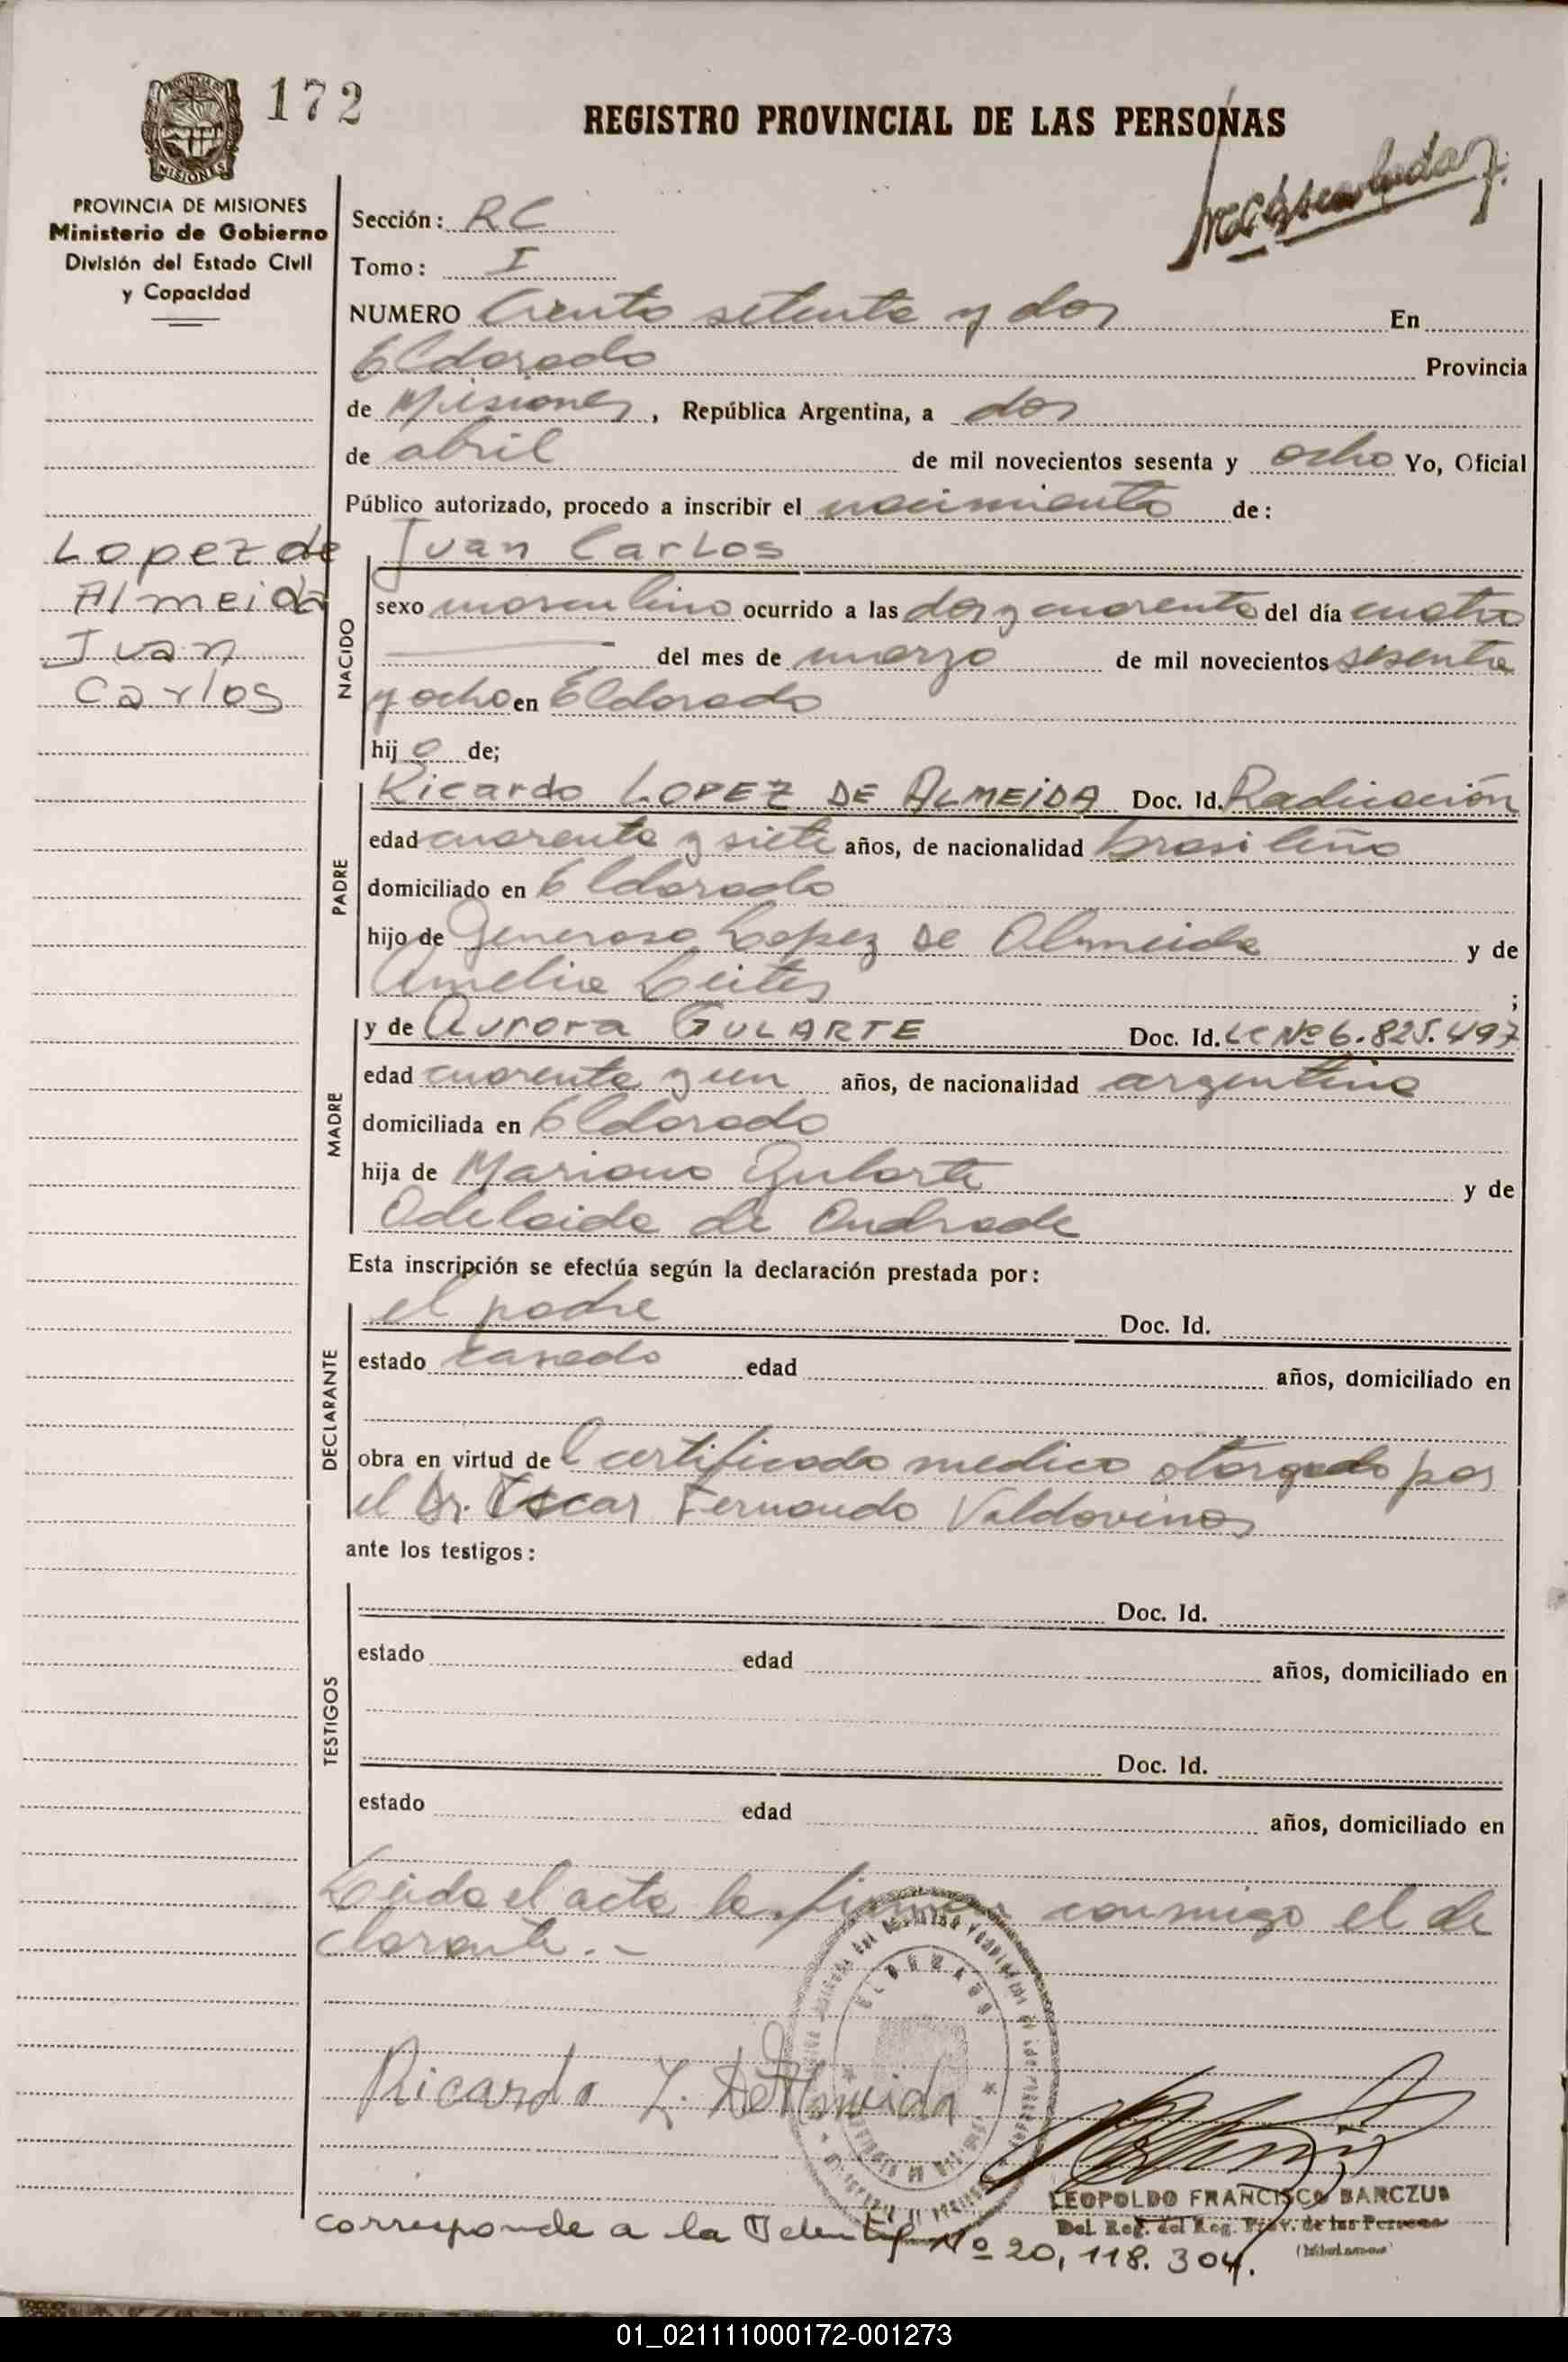 172
REGISTRO PROVINCIAL DE LAS PERSONAS
PROVINCIA DE MISIONES
Ministerio de Gobierno
División del Estado Civil
y Capacidad
Sección: RC
Tomo: I
NUMERO Ciento setenta y dos En
Eldorado Provincia
de Misiones, República Argentina, a dos
de abril de mil novecientos sesenta y ocho Yo, Oficial
Público autorizado, procedo a inscribir el nacimiento de:
Lopez de
Almeida
Juan
Carlos
NACIDO
Juan Carlos
sexo masculino ocurrido a las dos y cuarenta del día cuatro
del mes de marzo de mil novecientos sesenta
y ocho en Eldorado
hijo de;
PADRE
Ricardo LOPEZ DE ALMEIDA Doc. Id. Radicación
edad cuarenta y siete años, de nacionalidad brasileño
domiciliado en Eldorado
hijo de Generoso Lopez de Almeida y de
Amelia Leites ;
MADRE
y de Aurora GULARTE Doc. Id. LC Nº 6.825.497
edad cuarenta y un años, de nacionalidad argentina
domiciliada en Eldorado
hija de Mariano Gularte y de
Adelaida de Andrade
Esta inscripción se efectúa según la declaración prestada por:
DECLARANTE
el padre Doc. Id.
estado casado edad años, domiciliado en
obra en virtud de l certificado medico otorgado por
el Dr. Oscar Fernando Valdovinos
ante los testigos:
TESTIGOS
Doc. Id.
estado edad años, domiciliado en
Doc. Id.
estado edad años, domiciliado en
Leida el acta la firma conmigo el de
clarante.-
ELDORADO
Ricardo L. de Almeida
LEOPOLDO FRANCISCO BARCZUK
Del. Reg. del Reg. Prov. de las Personas
corresponde a la Identif. Nº 20,118.304.
01_021111000172-001273